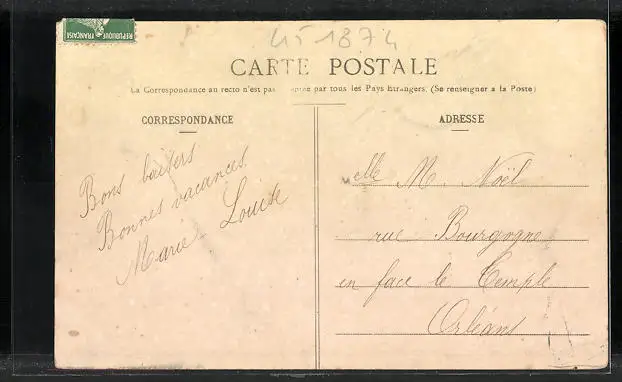 REPUBLIQUE FRANÇAISE
451874
CARTE POSTALE
La Correspondance au recto n'est pas acceptée par tous les Pays étrangers. (Se renseigner à la Poste)
CORRESPONDANCE
Bons baisers
Bonnes vacances.
Marie-Louise
ADRESSE
Mlle M. Noël
rue Bourgogne
en face le Temple
Orléans